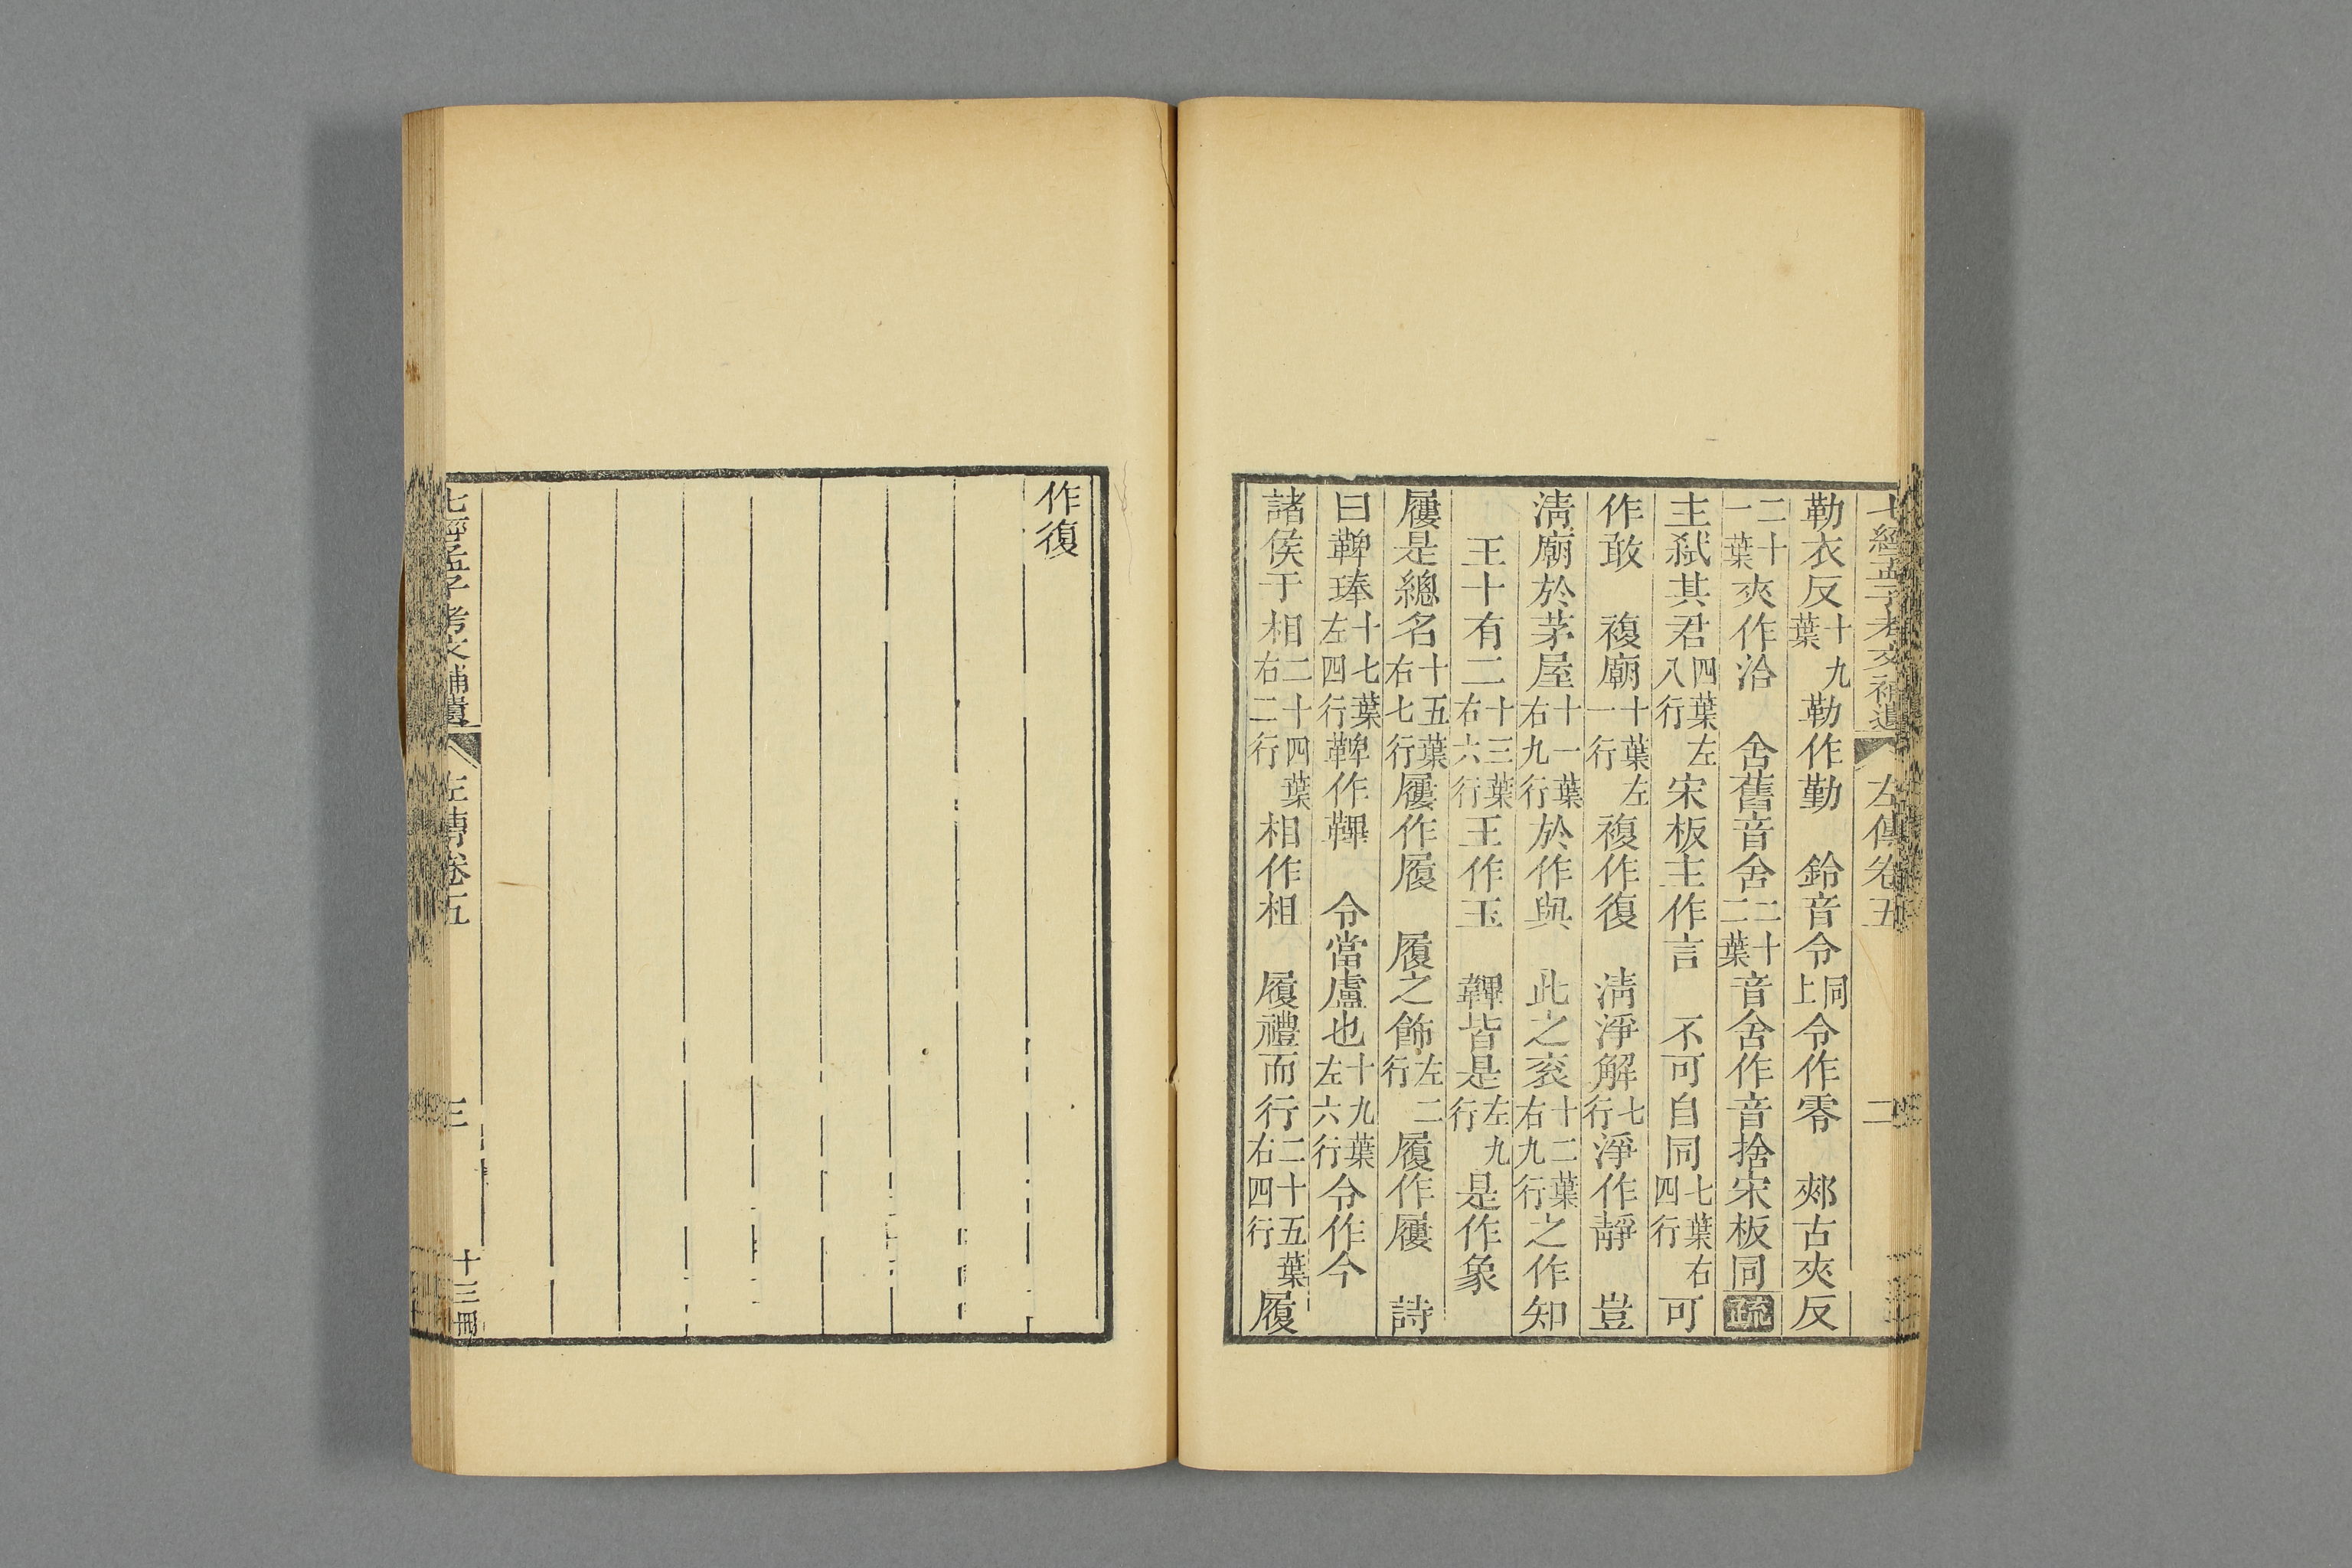 七經孟子考文補遺 左傳卷五 二
勒衣反十九葉勒作勤 鈴音令同上令作零 郟古夾反
二十一葉夾作洽 舍舊音舍二十二葉音舍作音捨宋板同疏
主弑其君四葉左八行宋板主作言 不可自同七葉右四行可
作敢 複廟十葉左一行複作復 清淨解七行淨作靜 豈
清廟於茅屋十一葉右九行於作與 此之衮十二葉右九行之作知
王十有二十三葉右六行王作玉 鞸皆是左九行是作象
屨是總名十五葉右七行屨作履 履之飾左二行履作屨 詩
曰鞞琫十七葉左四行鞞作鞸 令當盧也十九葉左六行令作今
諸侯于相二十四葉右二行相作柤 履禮而行二十五葉右四行履
作復
七經孟子考文補遺 左傳卷五 三 十三冊